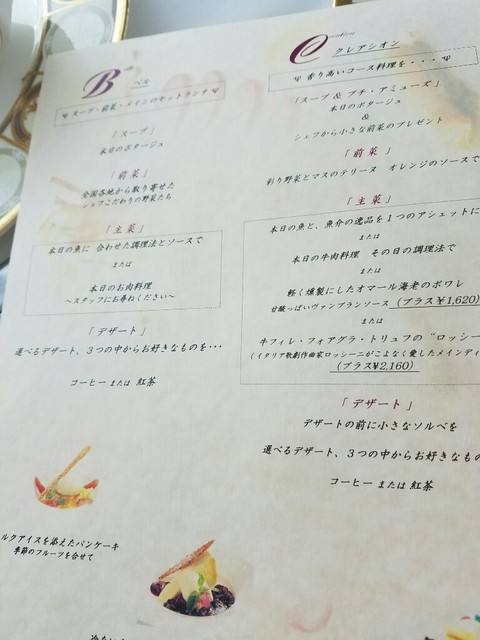 B
ベル
スープ・前菜・メインのセットランチ
「スープ」
本日のポタージュ
「前菜」
全国各地から取り寄せた
シェフこだわりの野菜たち
「主菜」
本日の魚に 合わせた調理法とソースで
または
本日のお肉料理
～スタッフにお尋ねください～
「デザート」
選べるデザート、３つの中からお好きなものを・・・
コーヒー または 紅茶
ルクアイスを添えたパンケーキ
季節のフルーツを合せて
クレアシオン
香り高いコース料理を・・・
「スープ ＆ プチ・アミューズ」
本日のポタージュ
＆
シェフから小さな前菜のプレゼント
「前菜」
彩り野菜とマスのテリーヌ オレンジのソースで
「主菜」
本日の魚と、魚介の逸品を１つのアシェットに
または
本日の牛肉料理 その日の調理法で
または
軽く燻製にしたオマール海老のポワレ
甘酸っぱいヴァンブランソース（プラス¥1,620）
または
牛フィレ・フォアグラ・トリュフの “ロッシー
（イタリア歌劇作曲家ロッシーニがこよなく愛したメインディ
（プラス¥2,160）
「デザート」
デザートの前に小さなソルベを
選べるデザート、３つの中からお好きなもの
コーヒー または 紅茶